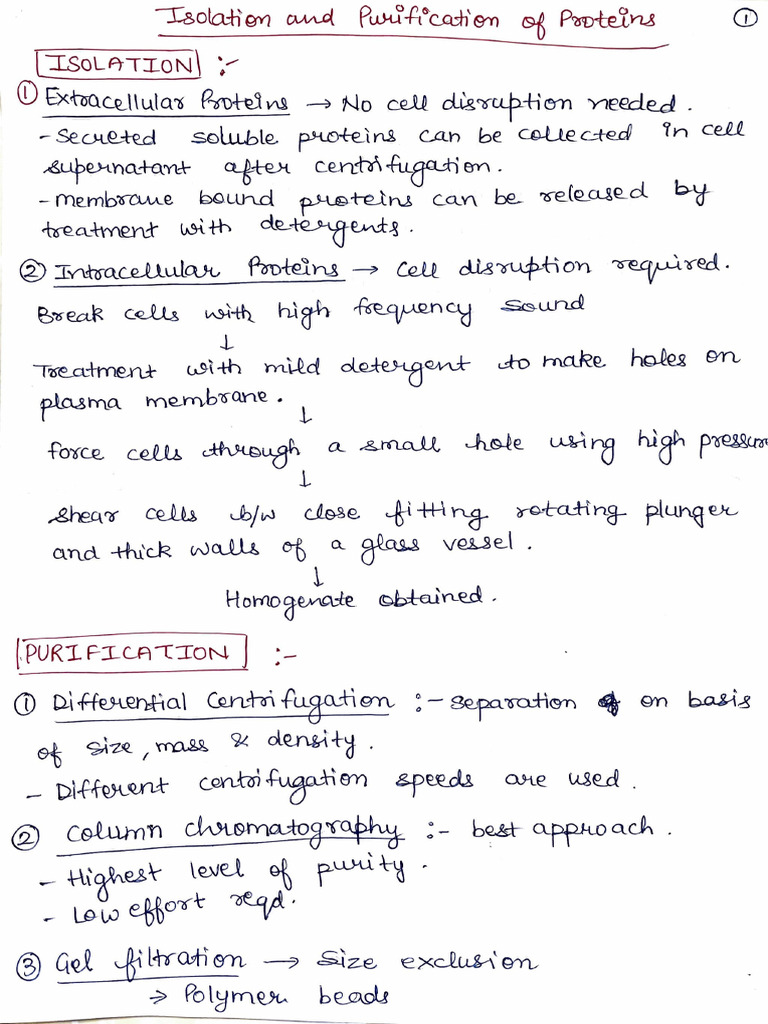 Isolation and Purification of Proteins
①
ISOLATION :-
① Extracellular Proteins → No cell disruption needed.
- Secreted soluble proteins can be collected in cell
supernatant after centrifugation.
- membrane bound proteins can be released by
treatment with detergents.
② Intracellular Proteins → Cell disruption required.
Break cells with high frequency sound
↓
Treatment with mild detergent to make holes on
plasma membrane.
↓
force cells through a small hole using high pressure
↓
Shear cells b/w close fitting rotating plunger
and thick walls of a glass vessel.
↓
Homogenate obtained.
PURIFICATION :-
① Differential Centrifugation :- separation on basis
of size, mass & density.
- Different centrifugation speeds are used.
② Column chromatography :- best approach.
- Highest level of purity.
- Low effort reqd.
③ Gel filtration → Size exclusion
→ Polymer beads